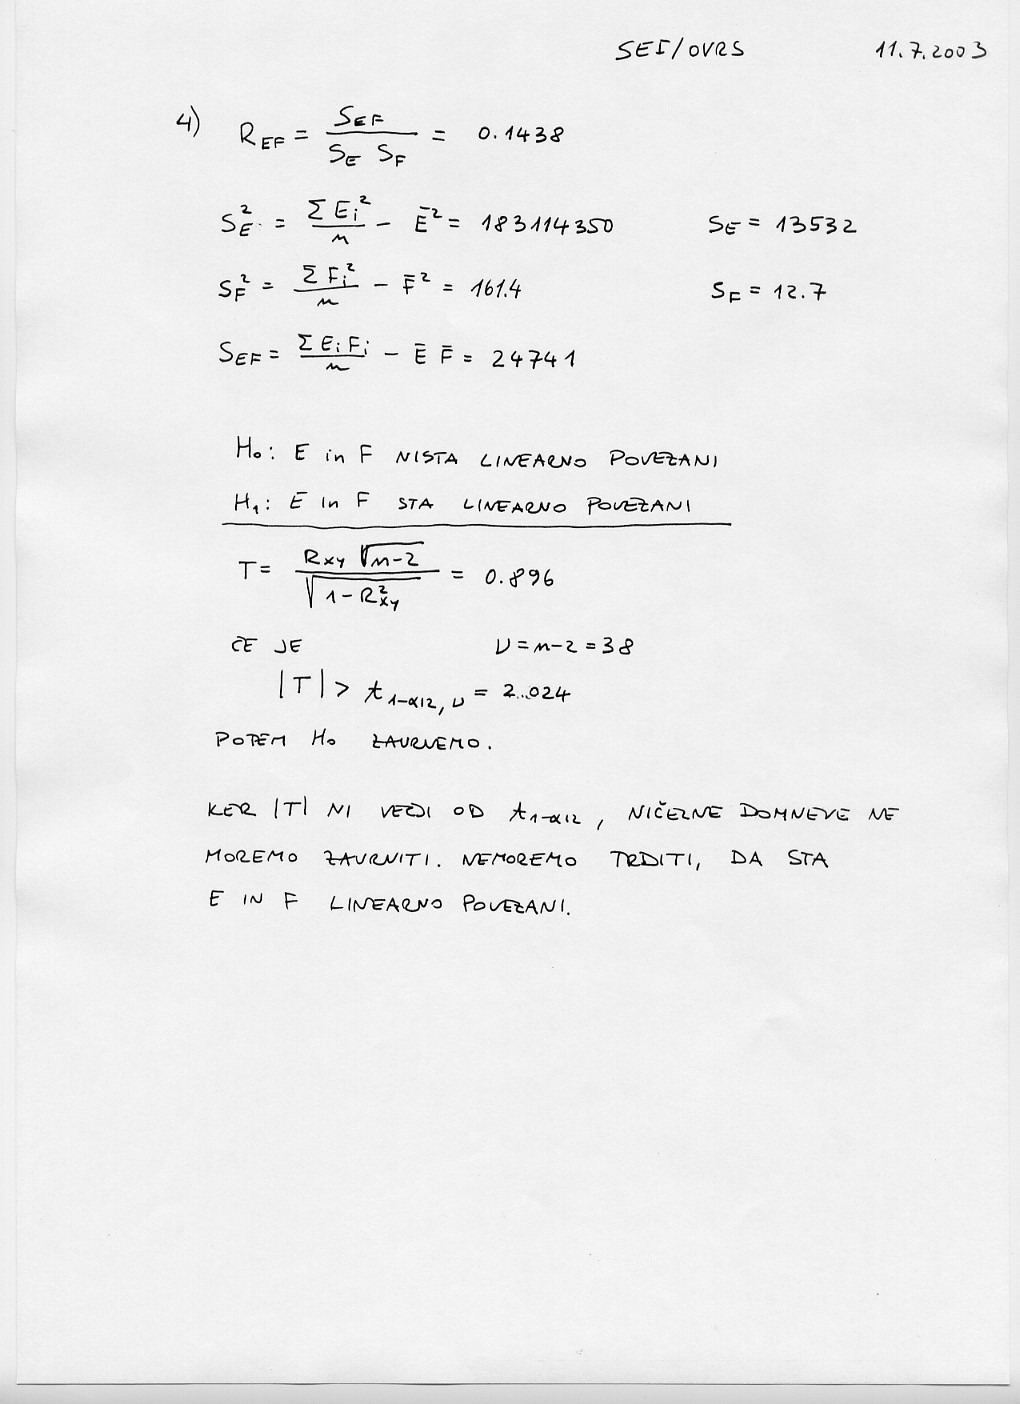 SEI/OVRS 11.7.2003
4) R_EF = S_EF / (S_E S_F) = 0.1438
S_E² = Σ E_i² / n − Ē² = 183114350 S_E = 13532
S_F² = Σ F_i² / n − F̄² = 161.4 S_F = 12.7
S_EF = Σ E_i F_i / n − Ē F̄ = 24741
H₀: E in F NISTA LINEARNO POVEZANI
H₁: E in F STA LINEARNO POVEZANI
T = R_xy √(n−2) / √(1−R²_xy) = 0.896
ČE JE ν = n−2 = 38
|T| > t_1−α/2, ν = 2.024
POTEM H₀ ZAVRNEMO.
KER |T| NI VEČJI OD t_1−α/2, NIČELNE DOMNEVE NE
MOREMO ZAVRNITI. NEMOREMO TRDITI, DA STA
E IN F LINEARNO POVEZANI.